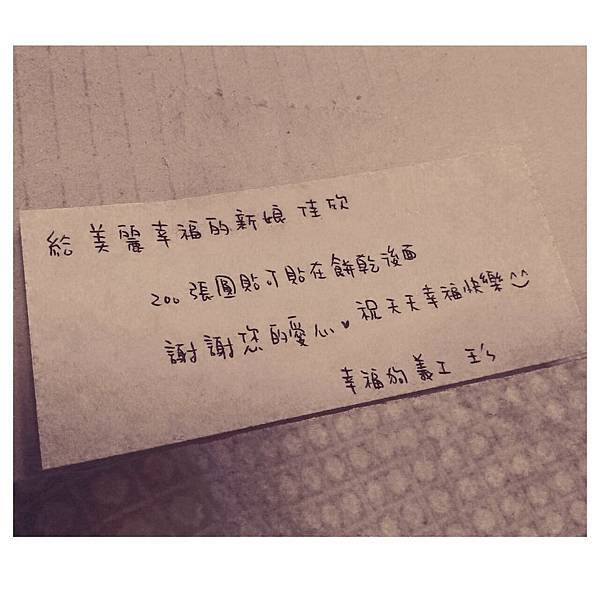 給 美麗幸福的新娘 佳欣
200張圓貼可貼在餅乾後面
謝謝您的愛心♥ 祝天天幸福快樂^^
幸福狗義工 玉's